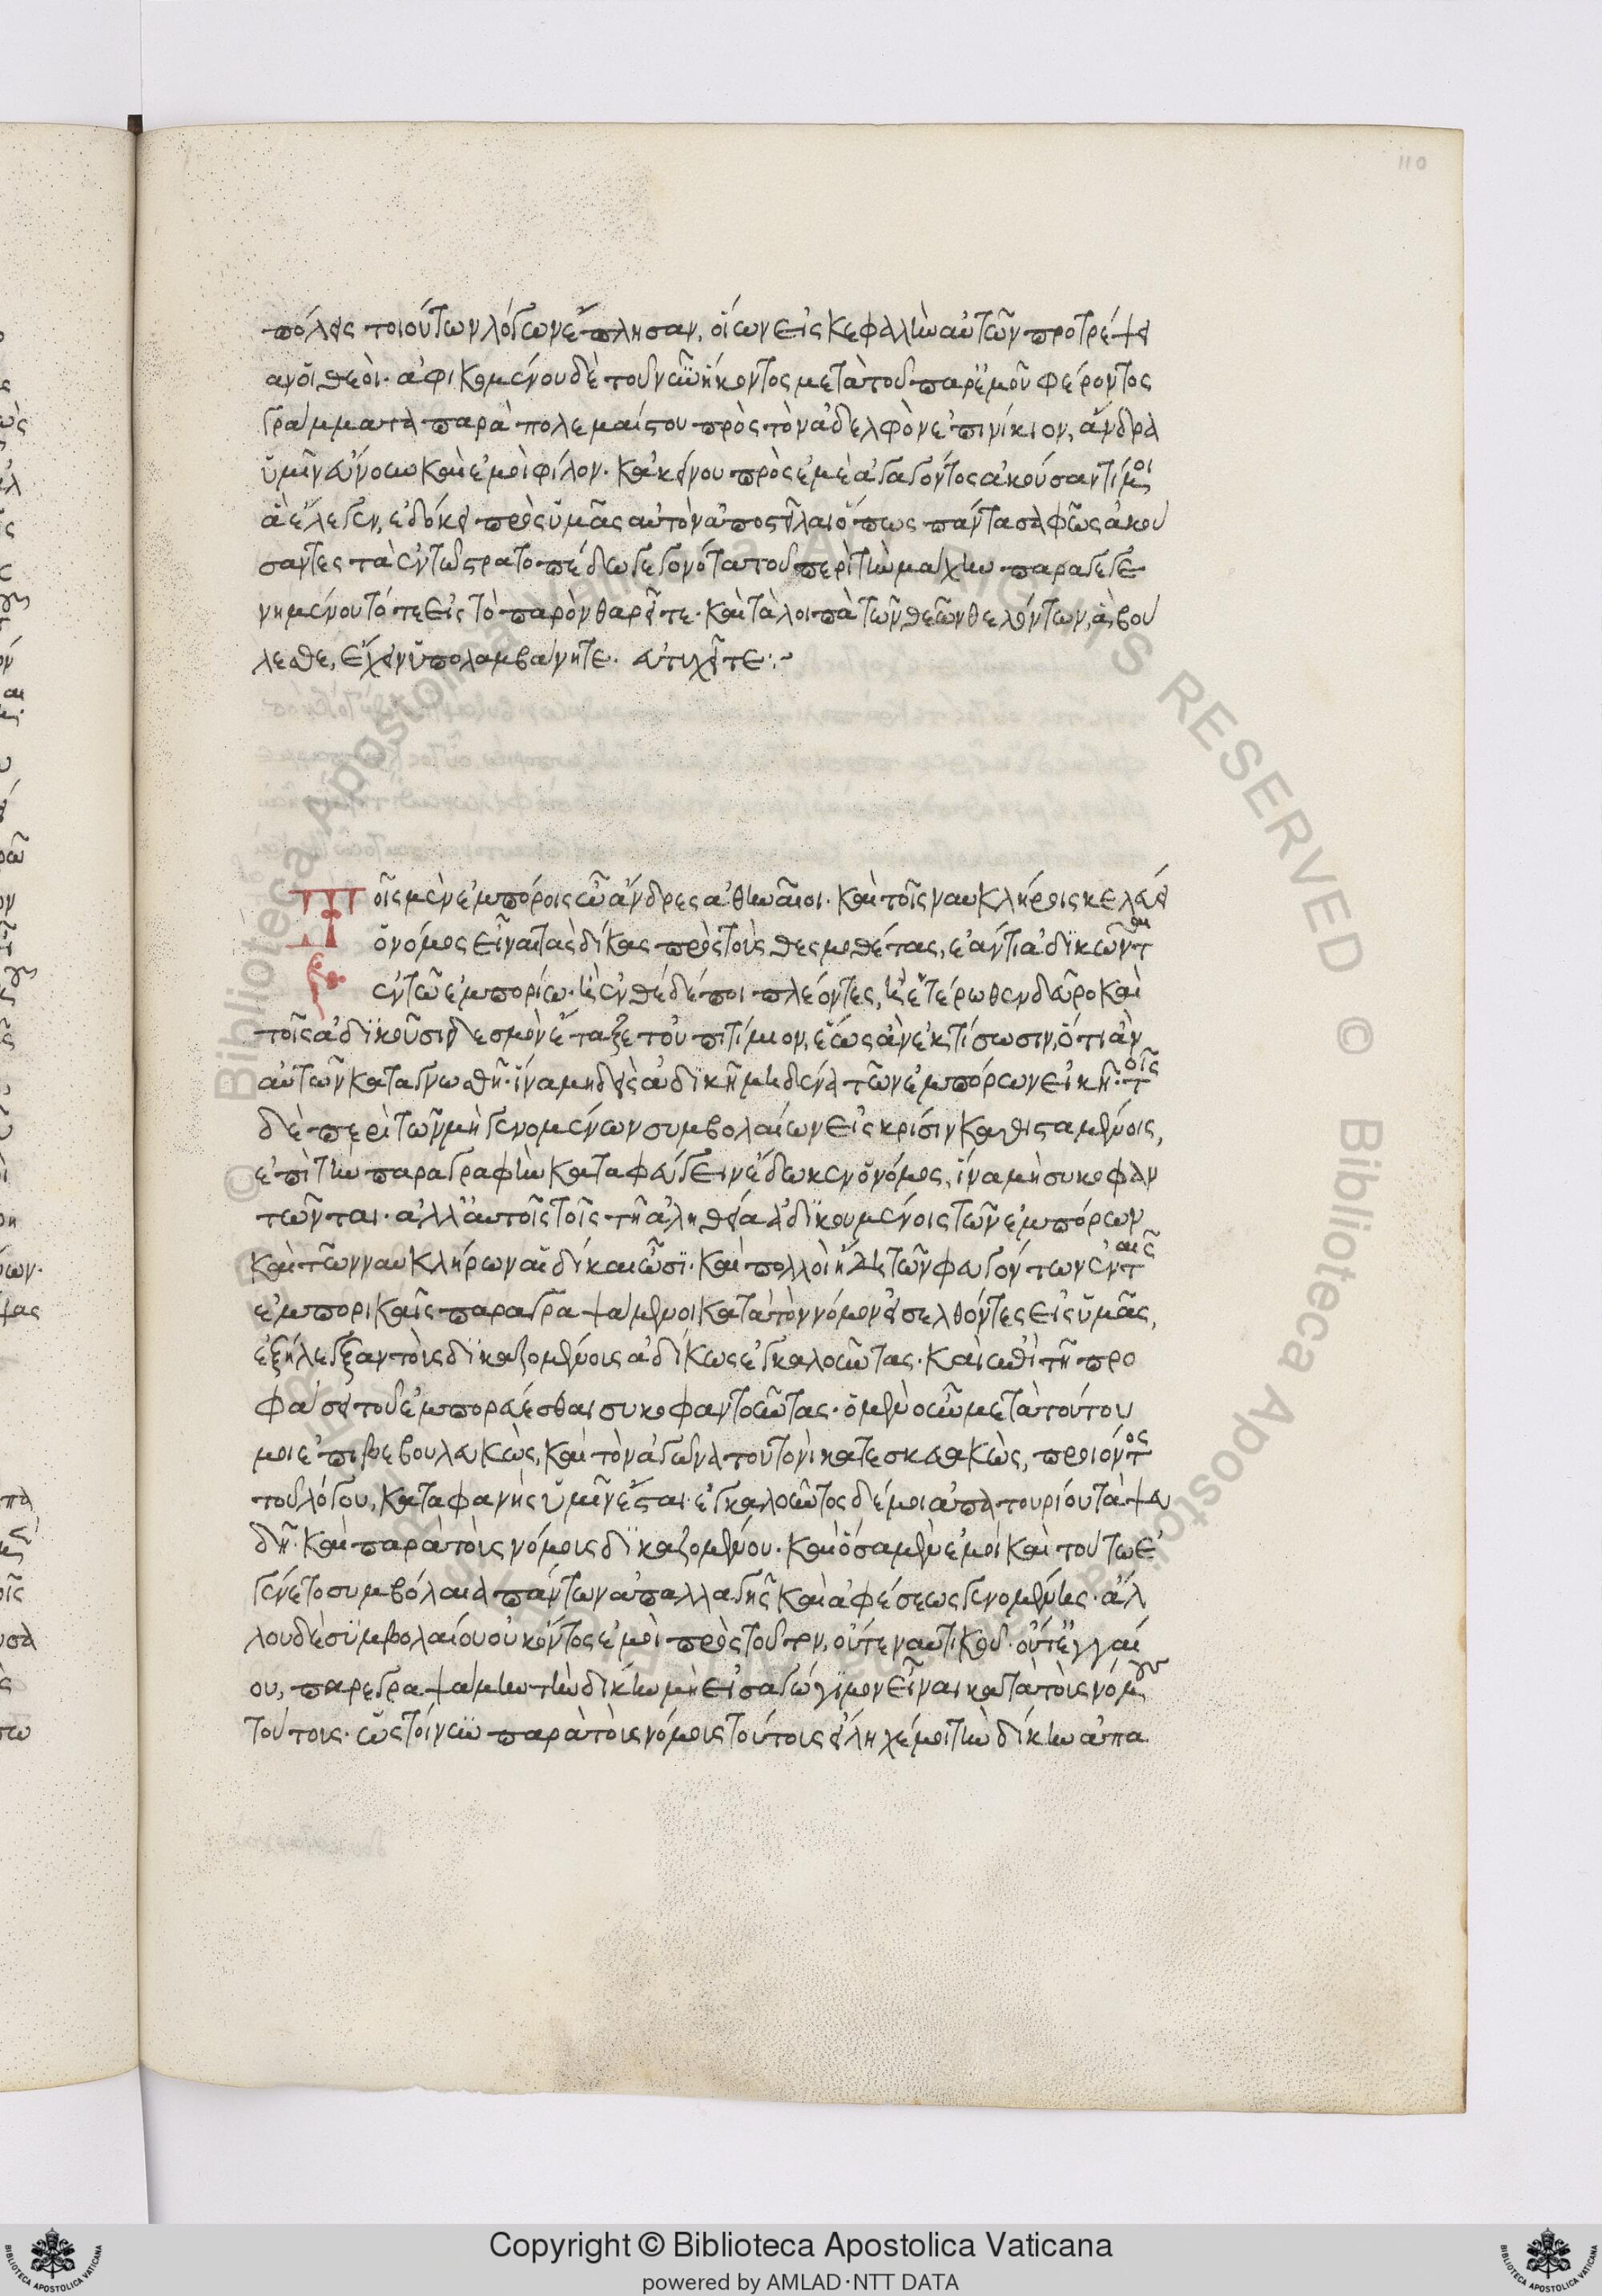 110
πόλεις τοιούτων λόγων ἔπλησαν, οἵων εἰς κεφαλὴν αὐτῶν προτρέψει
αν οἱ θεοί· ἀφικομένου δὲ τοῦ νῦν ἥκοντος μετὰ τοῦ παρ' ἐμοῦ φέροντος
γράμματα παρὰ πολεμαίστου πρὸς τὸν ἀδελφὸν ἐπινίκιον, ἄνδρα
ὑμῖν εὔνουν καὶ ἐμοὶ φίλον· κἀκείνου πρὸς ἐμὲ ἀγαγόντος ἀκούσαντί μοι
ἃ ἔλεγεν, ἐδόκει πρὸς ὑμᾶς αὐτὸν ἀποστεῖλαι ὅπως πάντα σαφῶς ἀκού
σαντες τὰ ἐν τῷ στρατοπέδῳ γεγονότα τοῦ περὶ τὴν μάχην παραγεγε
νημένου τό τε εἰς τὸ παρὸν θαρεῖτε· καὶ τὰ λοιπὰ τῶν θεῶν θελόντων, ἃ βού
λεσθε, ἕξειν ὑπολαμβάνητε. εὐτυχεῖτε:~
Τοῖς μὲν ἐμπόροις ὦ ἄνδρες ἀθηναῖοι· καὶ τοῖς ναυκλήροις κελεύει
ὁ νόμος εἶναι τὰς δίκας πρὸς τοὺς θεσμοθέτας, ἐάν τι ἀδικῶνται
ἐν τῷ ἐμπορίῳ· ἢ ἐνθένδε ποι πλέοντες, ἢ ἑτέρωθεν δεῦρο καὶ
τοῖς ἀδικοῦσιν δεσμὸν ἔταξε τοὐπιτίμιον, ἕως ἂν ἐκτίσωσιν, ὅτι ἂν
αὐτῶν καταγνωσθῇ· ἵνα μηδεὶς ἀδικῇ μηδένα τῶν ἐμπόρων εἰκῇ· τοῖς
δὲ περὶ τῶν μὴ γενομένων συμβολαίων εἰς κρίσιν καθισταμένοις,
ἐπὶ τὴν παραγραφὴν καταφεύγειν ἔδωκεν ὁ νόμος, ἵνα μὴ συκοφαν
τῶνται· ἀλλ' αὐτοῖς τοῖς τῇ ἀληθείᾳ ἀδικουμένοις τῶν ἐμπόρων
καὶ τῶν ναυκλήρων αἱ δίκαι ὦσι· καὶ πολλοὶ ἤδη τῶν φευγόντων ἐν ταῖς
ἐμπορικαῖς παραγραψάμενοι κατὰ τὸν νόμον εἰσελθόντες εἰς ὑμᾶς,
ἐξήλεγξαν τοὺς δικαζομένους ἀδίκως ἐγκαλοῦντας· καὶ ἐπὶ τῇ προ
φάσει τοῦ ἐμπορεύεσθαι συκοφαντοῦντας· ὁ μὲν οὖν μετὰ τούτου
μοι ἐπιβεβουλευκὼς, καὶ τὸν ἀγῶνα τουτονὶ κατεσκευακὼς, προιόντος
τοῦ λόγου, καταφανὴς ὑμῖν ἔσται· ἐγκαλοῦντος δέ μοι ἀπατουρίου τὰ ψευ
δῆ· καὶ παρὰ τοὺς νόμους δικαζομένου· καὶ ὅσα μὲν ἐμοὶ καὶ τούτῳ ἐ
γένετο συμβόλαια πάντων ἀπαλλαγῆς καὶ ἀφέσεως γενομένης· ἄλ
λου δὲ συμβολαίου οὐκ ὄντος ἐμοὶ πρὸς τοῦτον, οὔτε ναυτικοῦ· οὔτ' ἐγγαί
ου, παρεγραψάμην τὴν δίκην μὴ εἰσαγώγιμον εἶναι κατὰ τοὺς νόμους
τουτους· ὡς τοίνυν παρὰ τοὺς νόμους τούτους εἴληχέ μοι τὴν δίκην ἀπα
© Biblioteca Apostolica Vaticana · ALL RIGHTS RESERVED
Copyright © Biblioteca Apostolica Vaticana
powered by AMLAD·NTT DATA